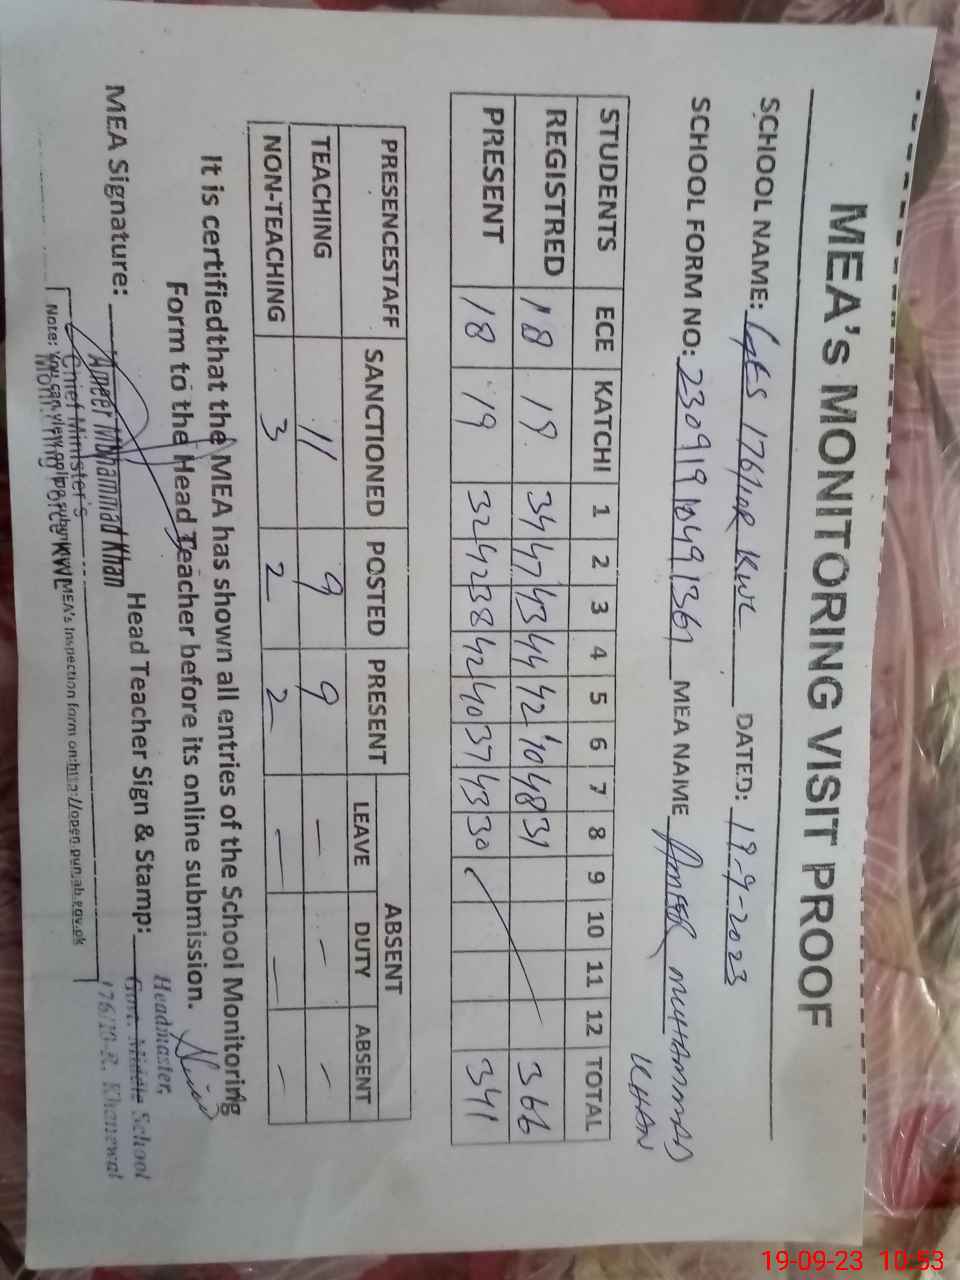 MEA's MONITORING VISIT PROOF
SCHOOL NAME: GES 176/10R KWL DATED: 19-9-2023
SCHOOL FORM NO: 230919 MEA NAME AMEER MUHAMMAD KHAN
STUDENTS ECE KATCHI 1 2 3 4 5 6 7 8 9 10 11 12 TOTAL
REGISTRED 18 19 34 47 43 44 42 40 48 31 366
PRESENT 18 19 32 42 38 42 40 37 43 30 341
PRESENCESTAFF SANCTIONED POSTED PRESENT ABSENT
LEAVE DUTY ABSENT
TEACHING 11 9 9 — - -
NON-TEACHING 3 2 2 — — -
It is certifiedthat the MEA has shown all entries of the School Monitoring
Form to the Head Teacher before its online submission.
MEA Signature: Head Teacher Sign & Stamp:
Ameer Mohammad Khan
Chief Minister's
Monitoring Force KWL
Headmaster,
Govt. Middle School
176/10-R. Khanewal
Note: You can view online MEA's Inspection form on:http://open.punjab.gov.pk
19-09-23 10:53